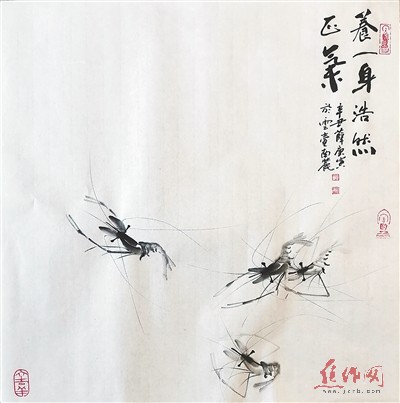 養一身浩然
正氣
辛丑薛庚寅
於雲臺南麓
焦作网
www.jzrb.com